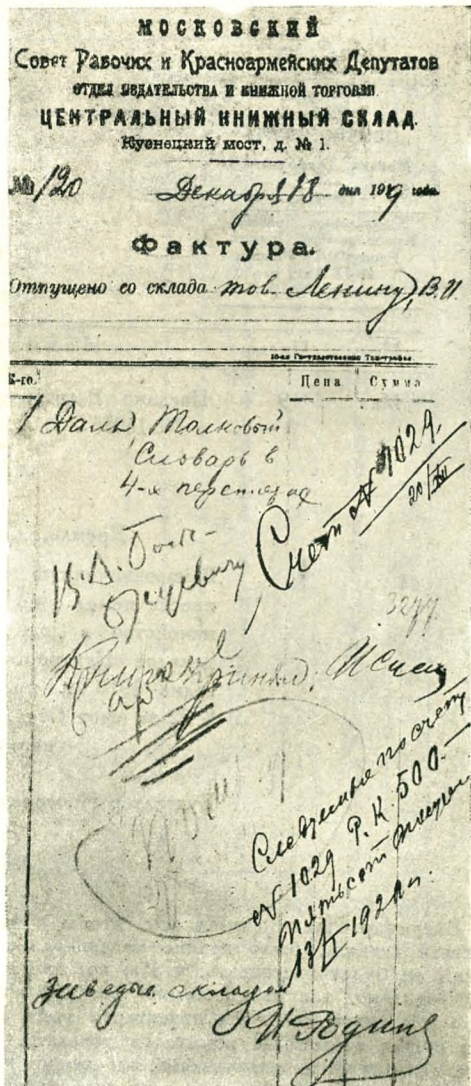 МОСКОВСКИЙ
Совет Рабочих и Красноармейских Депутатов
ОТДЕЛ ИЗДАТЕЛЬСТВА И КНИЖНОЙ ТОРГОВЛИ
ЦЕНТРАЛЬНЫЙ КНИЖНЫЙ СКЛАД.
Кузнецкий мост, д. № 1.
№ 120 Декабря 18 дня 1919 года.
Фактура.
Отпущено со склада тов. Ленину, В.И.
10-ая Государственная Типография
К-го. Цена Сумма
1 Даль Толковый
Словарь в
4-х переплетах
Счет № 1029.
20/XII
В.Д. Бонч-
Бруевичу
3277
Книги принял
Следуемые по счету
№ 1029 Р.К. 500.—
Пятьсот получил
13/I 1920 г.
Заведыв. складом
И Родин